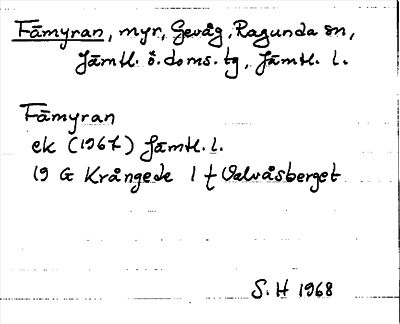 Fāmyran, myr, Gevåg, Ragunda sn,
Jämtl. ö. doms. tg, Jämtl. l.
Fāmyran
ek (1967) Jämtl. l.
19 G Krångede 1 f Valvåsberget
S. H 1968